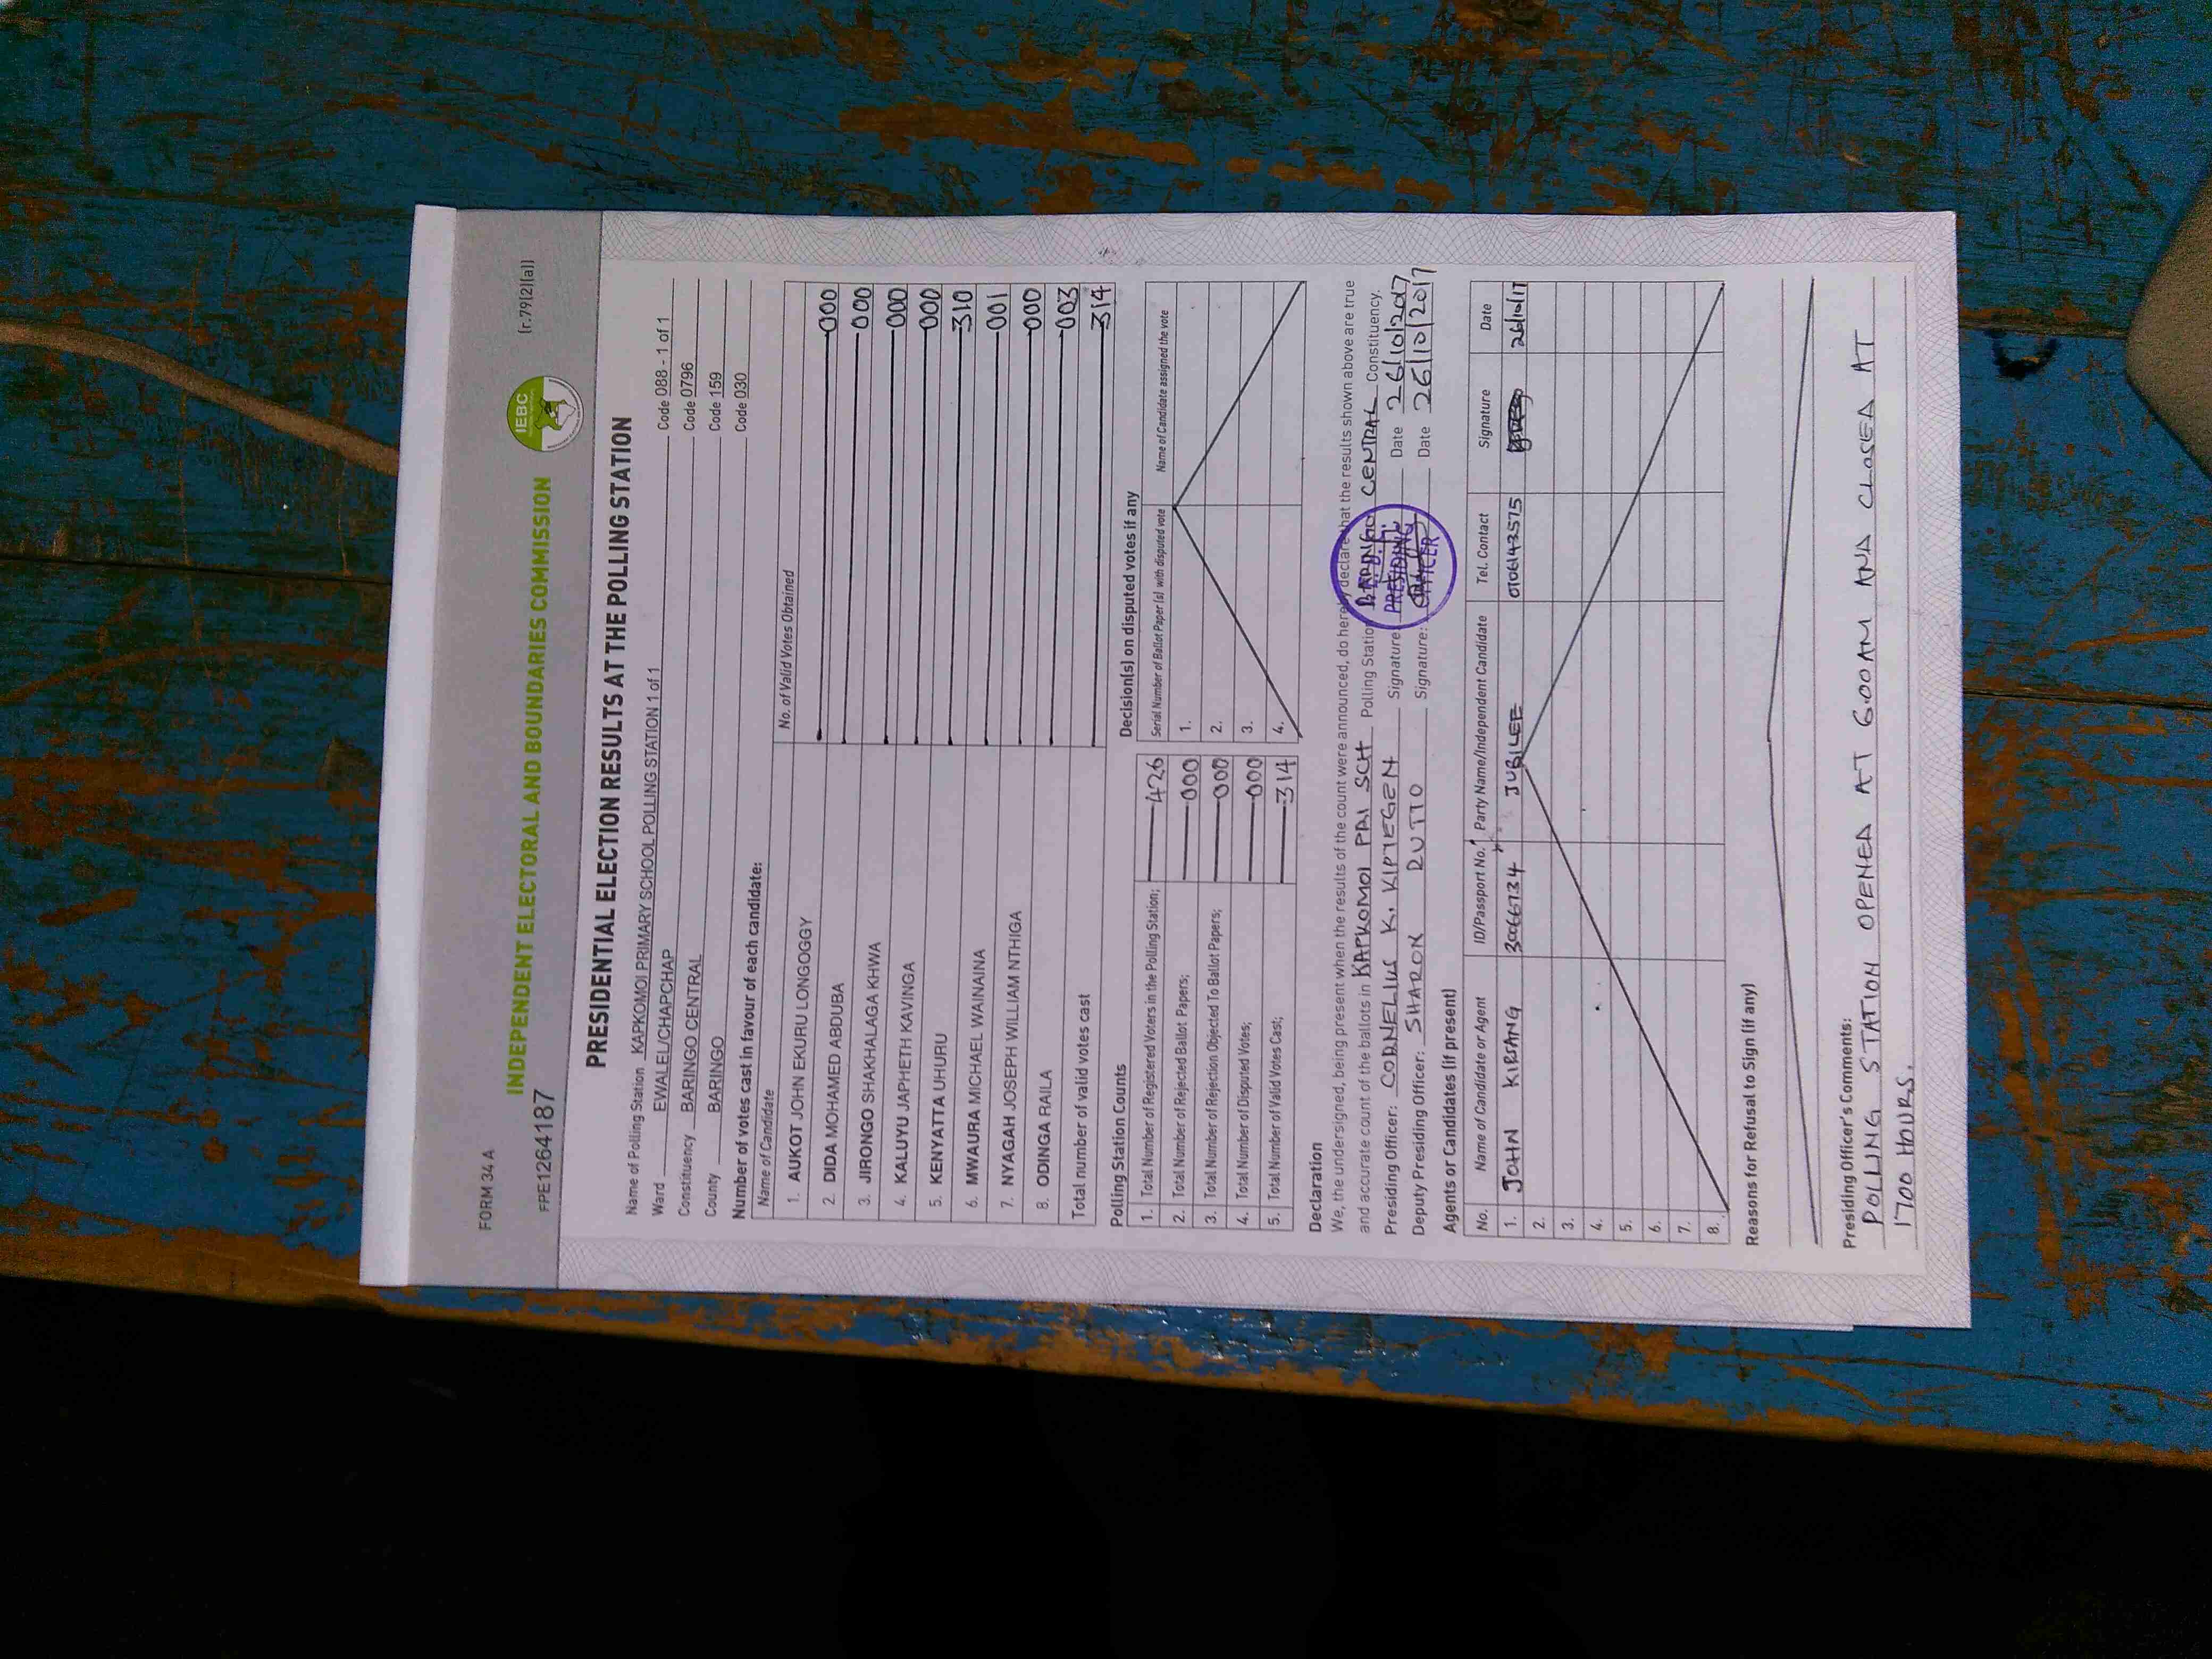 FORM 34 A
INDEPENDENT ELECTORAL AND BOUNDARIES COMMISSION
IEBC
(r.79(2)(a))
FPE1264187
PRESIDENTIAL ELECTION RESULTS AT THE POLLING STATION
Name of Polling Station KAPKOMOI PRIMARY SCHOOL POLLING STATION 1 of 1 Code 088 - 1 of 1
Ward EWALEL/CHAPCHAP Code 0796
Constituency BARINGO CENTRAL Code 159
County BARINGO Code 030
Number of votes cast in favour of each candidate:
Name of Candidate No. of Valid Votes Obtained
1. AUKOT JOHN EKURU LONGOGGY 000
2. DIDA MOHAMED ABDUBA 000
3. JIRONGO SHAKHALAGA KHWA 000
4. KALUYU JAPHETH KAVINGA 000
5. KENYATTA UHURU 310
6. MWAURA MICHAEL WAINAINA 001
7. NYAGAH JOSEPH WILLIAM NTHIGA 000
8. ODINGA RAILA 003
Total number of valid votes cast 314
Polling Station Counts
1. Total Number of Registered Voters in the Polling Station; 426
2. Total Number of Rejected Ballot Papers; 000
3. Total Number of Rejection Objected To Ballot Papers; 000
4. Total Number of Disputed Votes; 000
5. Total Number of Valid Votes Cast; 314
Decision(s) on disputed votes if any
Serial Number of Ballot Paper (s) with disputed vote Name of Candidate assigned the vote
1.
2.
3.
4.
Declaration
We, the undersigned, being present when the results of the count were announced, do hereby declare that the results shown above are true
and accurate count of the ballots in KAPKOMOI PRI SCH Polling Station BARINGO CENTRAL Constituency.
Presiding Officer: CORNELIUS K. KIPTEGEN Signature: Date 26/10/2017
Deputy Presiding Officer: SHARON RUTTO Signature: Date 26/10/2017
PRESIDING
OFFICER
Agents or Candidates (if present)
No. Name of Candidate or Agent ID/Passport No. Party Name/Independent Candidate Tel. Contact Signature Date
1. JOHN KIRSANG 30066734 JUBILEE 0706143575 26/10/17
2.
3.
4.
5.
6.
7.
8.
Reasons for Refusal to Sign (if any)
Presiding Officer's Comments:
POLLING STATION OPENED AT 600AM AND CLOSED AT
1700 HOURS.